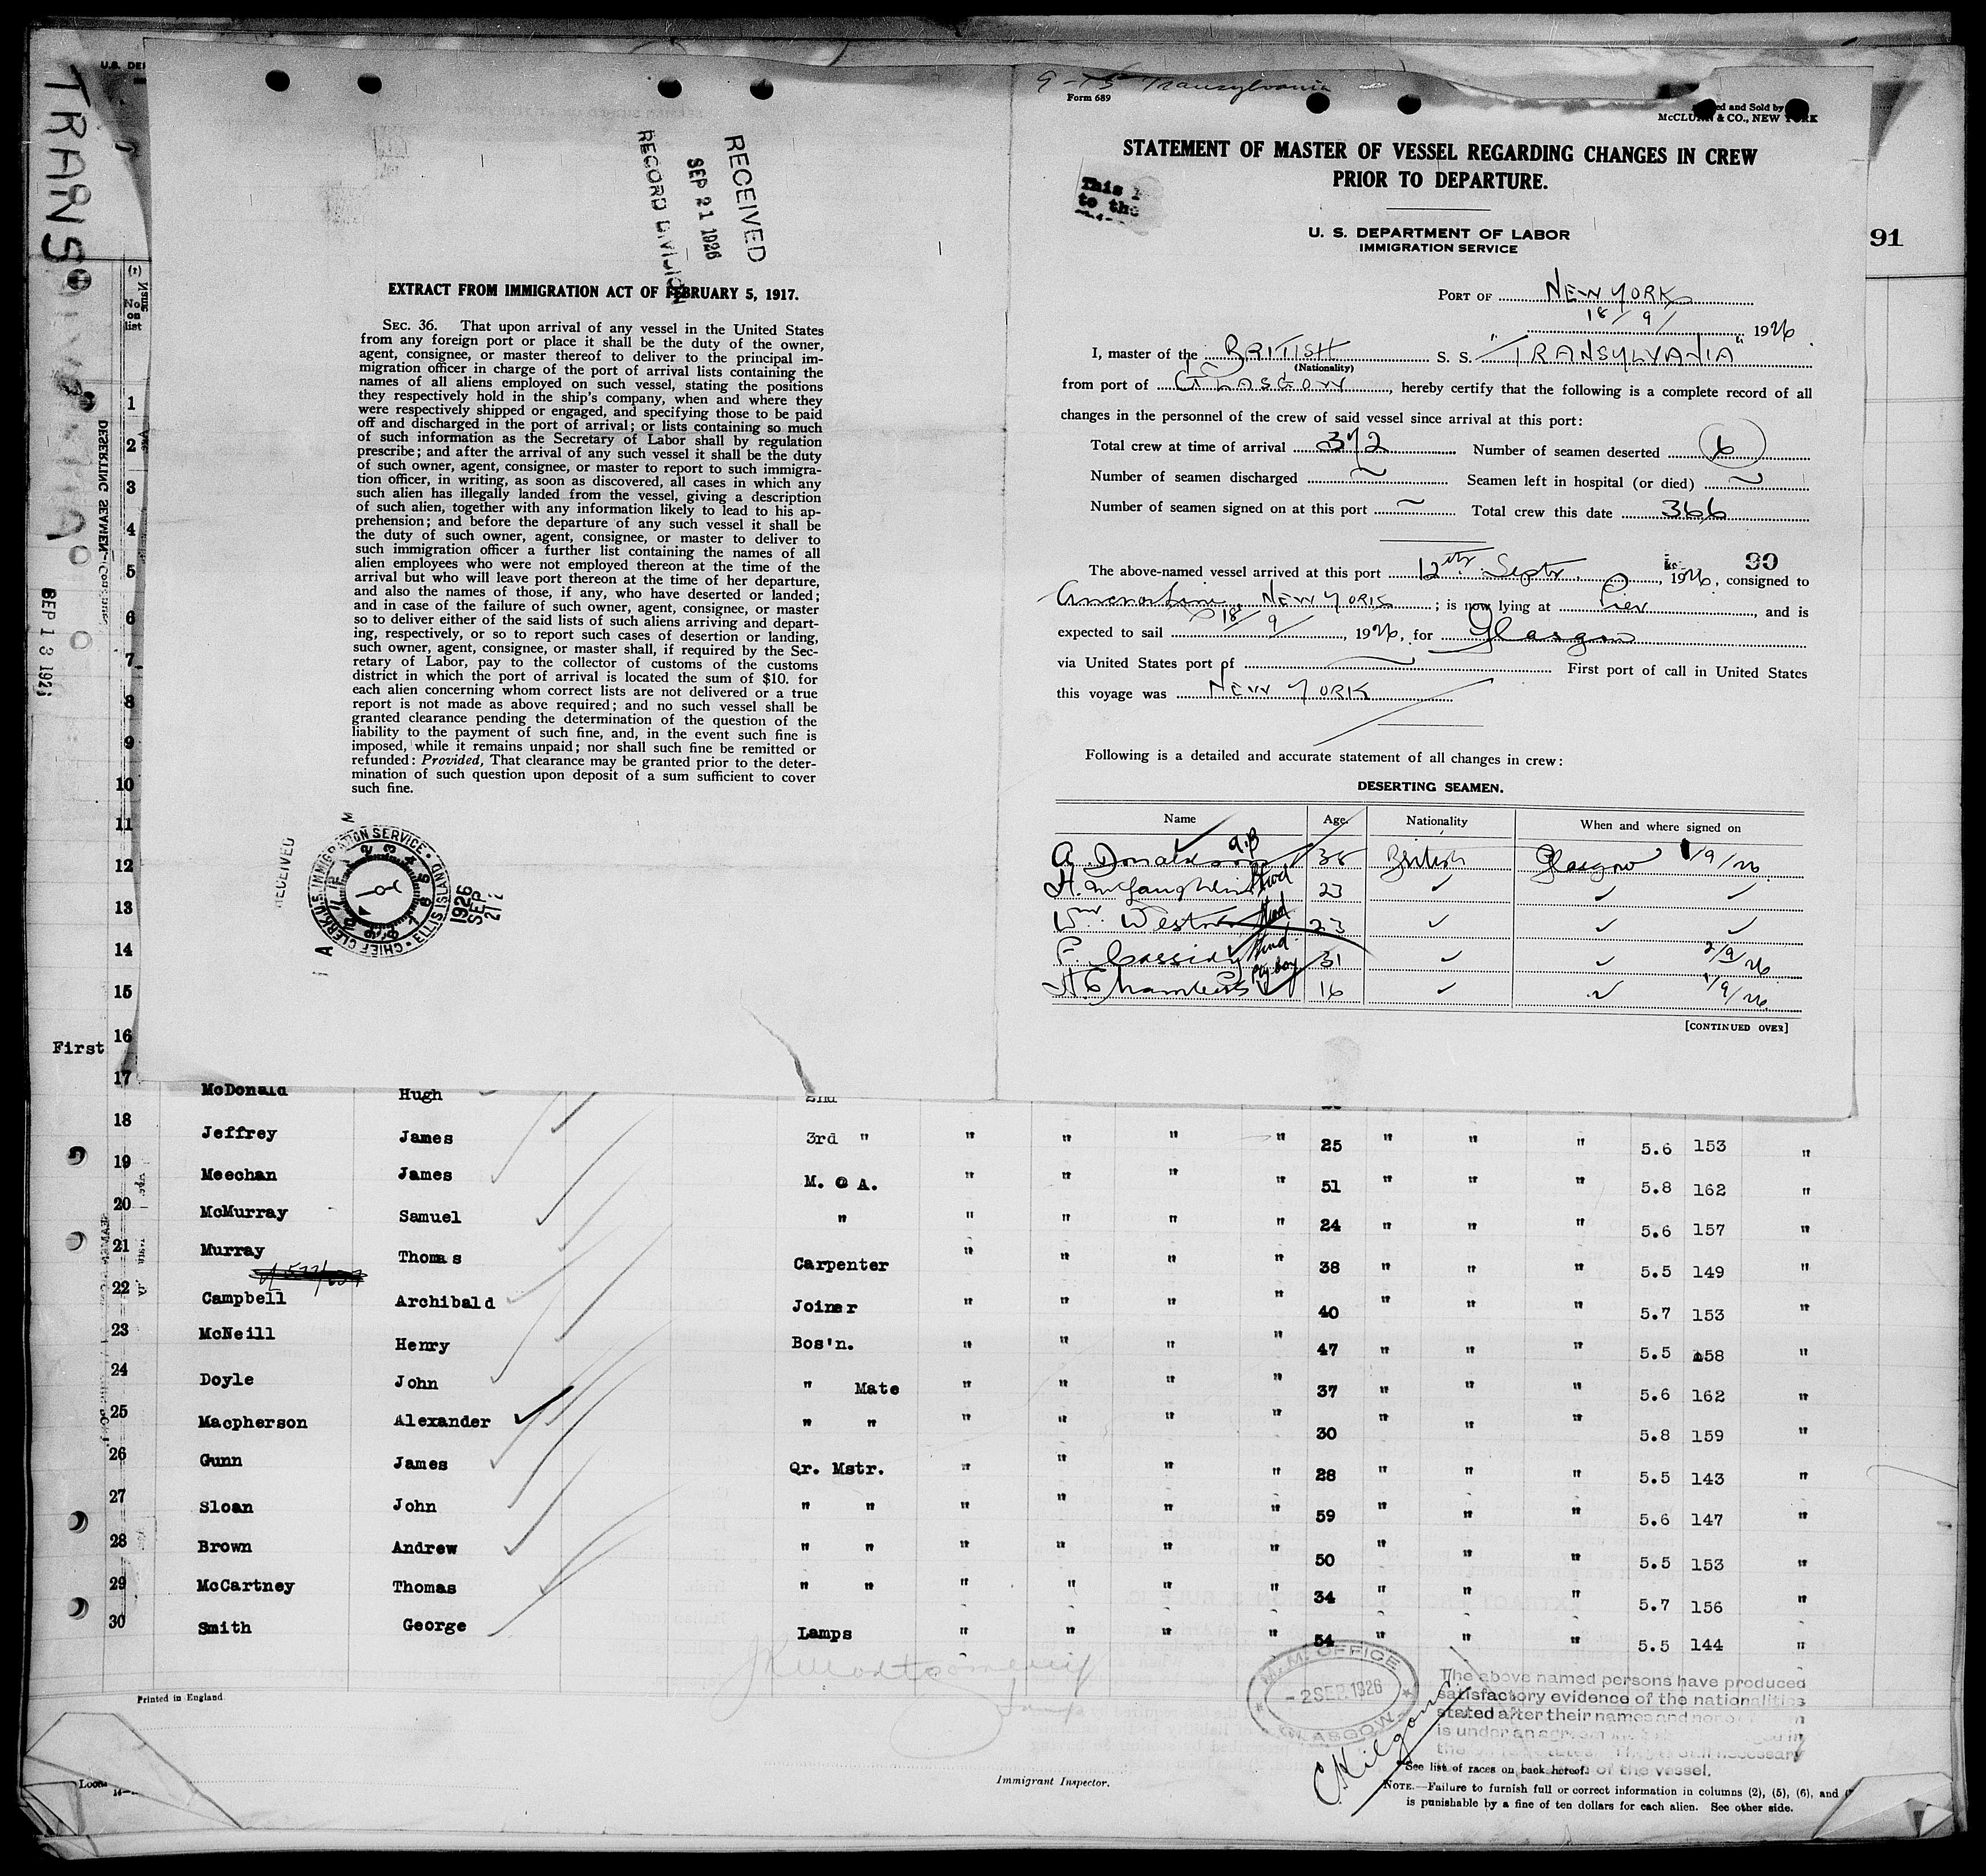 U.S. DE
TRANSYLVANIA
SEP 13 192
First
RECEIVED
SEP 21 1926
RECORD DIVISION
EXTRACT FROM IMMIGRATION ACT OF FEBRUARY 5, 1917.
SEC. 36. That upon arrival of any vessel in the United States
from any foreign port or place it shall be the duty of the owner,
agent, consignee, or master thereof to deliver to the principal im-
migration officer in charge of the port of arrival lists containing the
names of all aliens employed on such vessel, stating the positions
they respectively hold in the ship's company, when and where they
were respectively shipped or engaged, and specifying those to be paid
off and discharged in the port of arrival; or lists containing so much
of such information as the Secretary of Labor shall by regulation
prescribe; and after the arrival of any such vessel it shall be the duty
of such owner, agent, consignee, or master to report to such immigra-
tion officer, in writing, as soon as discovered, all cases in which any
such alien has illegally landed from the vessel, giving a description
of such alien, together with any information likely to lead to his ap-
prehension; and before the departure of any such vessel it shall be
the duty of such owner, agent, consignee, or master to deliver to
such immigration officer a further list containing the names of all
alien employees who were not employed thereon at the time of the
arrival but who will leave port thereon at the time of her departure,
and also the names of those, if any, who have deserted or landed;
and in case of the failure of such owner, agent, consignee, or master
so to deliver either of the said lists of such aliens arriving and depart-
ing, respectively, or so to report such cases of desertion or landing,
such owner, agent, consignee, or master shall, if required by the Sec-
retary of Labor, pay to the collector of customs of the customs
district in which the port of arrival is located the sum of $10. for
each alien concerning whom correct lists are not delivered or a true
report is not made as above required; and no such vessel shall be
granted clearance pending the determination of the question of the
liability to the payment of such fine, and, in the event such fine is
imposed, while it remains unpaid; nor shall such fine be remitted or
refunded: Provided, That clearance may be granted prior to the deter-
mination of such question upon deposit of a sum sufficient to cover
such fine.
RECEIVED
CHIEF CLERK U.S. IMMIGRATION SERVICE · ELLIS ISLAND
1926 SEP 21
9-15 Transylvania
Form 689
and Sold by
McCLU & CO., NEW YORK
STATEMENT OF MASTER OF VESSEL REGARDING CHANGES IN CREW
PRIOR TO DEPARTURE.
This
to the
U. S. DEPARTMENT OF LABOR
IMMIGRATION SERVICE
91
PORT OF NEW YORK
18/9/ 1926.
I, master of the BRITISH S. S. "TRANSYLVANIA"
(Nationality)
from port of GLASGOW, hereby certify that the following is a complete record of all
changes in the personnel of the crew of said vessel since arrival at this port:
Total crew at time of arrival 372 Number of seamen deserted 6
Number of seamen discharged ~ Seamen left in hospital (or died) ~
Number of seamen signed on at this port ~ Total crew this date 366
90
The above-named vessel arrived at this port 12th Septr., 1926, consigned to
NEW YORK; is now lying at Pier, and is
expected to sail 18/9/, 1926, for Glasgow
via United States port of ~ First port of call in United States
this voyage was NEW YORK
Following is a detailed and accurate statement of all changes in crew:
DESERTING SEAMEN.
Name Age. Nationality When and where signed on
A. Donaldson A.B 38 British Glasgow 1/9/26.
H. McLaughlin 23 ✓ ✓ ✓
Wm. Weston 23 ✓ ✓ ✓
F. Cassidy 31 ✓ ✓ 2/9/26
H. Chambers 16 ✓ ✓ 1/9/26.
[CONTINUED OVER]
(1)
No. on list
1
2
3
4
5
6
7
8
9
10
11
12
13
14
15
16
17 McDonald Hugh 2nd
18 Jeffrey James 3rd " " " " " 25 " " " 5.6 153 "
19 Meechan James M. @ A. " " " " 51 " " " 5.8 162 "
20 McMurray Samuel " " " " " 24 " " " 5.6 157 "
21 Murray Thomas Carpenter " " " " 38 " " " 5.5 149 "
22 Campbell Archibald Joiner " " " " 40 " " " 5.7 153 "
23 McNeill Henry Bos'n. " " " " 47 " " " 5.5 158 "
24 Doyle John " Mate " " " " 37 " " " 5.6 162 "
25 Macpherson Alexander " " " " " " 30 " " " 5.8 159 "
26 Gunn James Qr. Mstr. " " " " 28 " " " 5.5 143 "
27 Sloan John " " " " " " 59 " " 5.6 147 "
28 Brown Andrew " " " " " " 50 " " " 5.5 153 "
29 McCartney Thomas " " " " " " 34 " " " 5.7 156 "
30 Smith George Lamps " " " " 54 " " " 5.5 144 "
Printed in England
M.M. OFFICE
-2 SEP. 1926
GLASGOW
The above named persons have produced
satisfactory evidence of the nationalities
stated after their names and
is under an
of the vessel.
Immigrant Inspector.
*See list of races on back hereof.
NOTE.—Failure to furnish full or correct information in columns (2), (5), (6), and
is punishable by a fine of ten dollars for each alien. See other side.